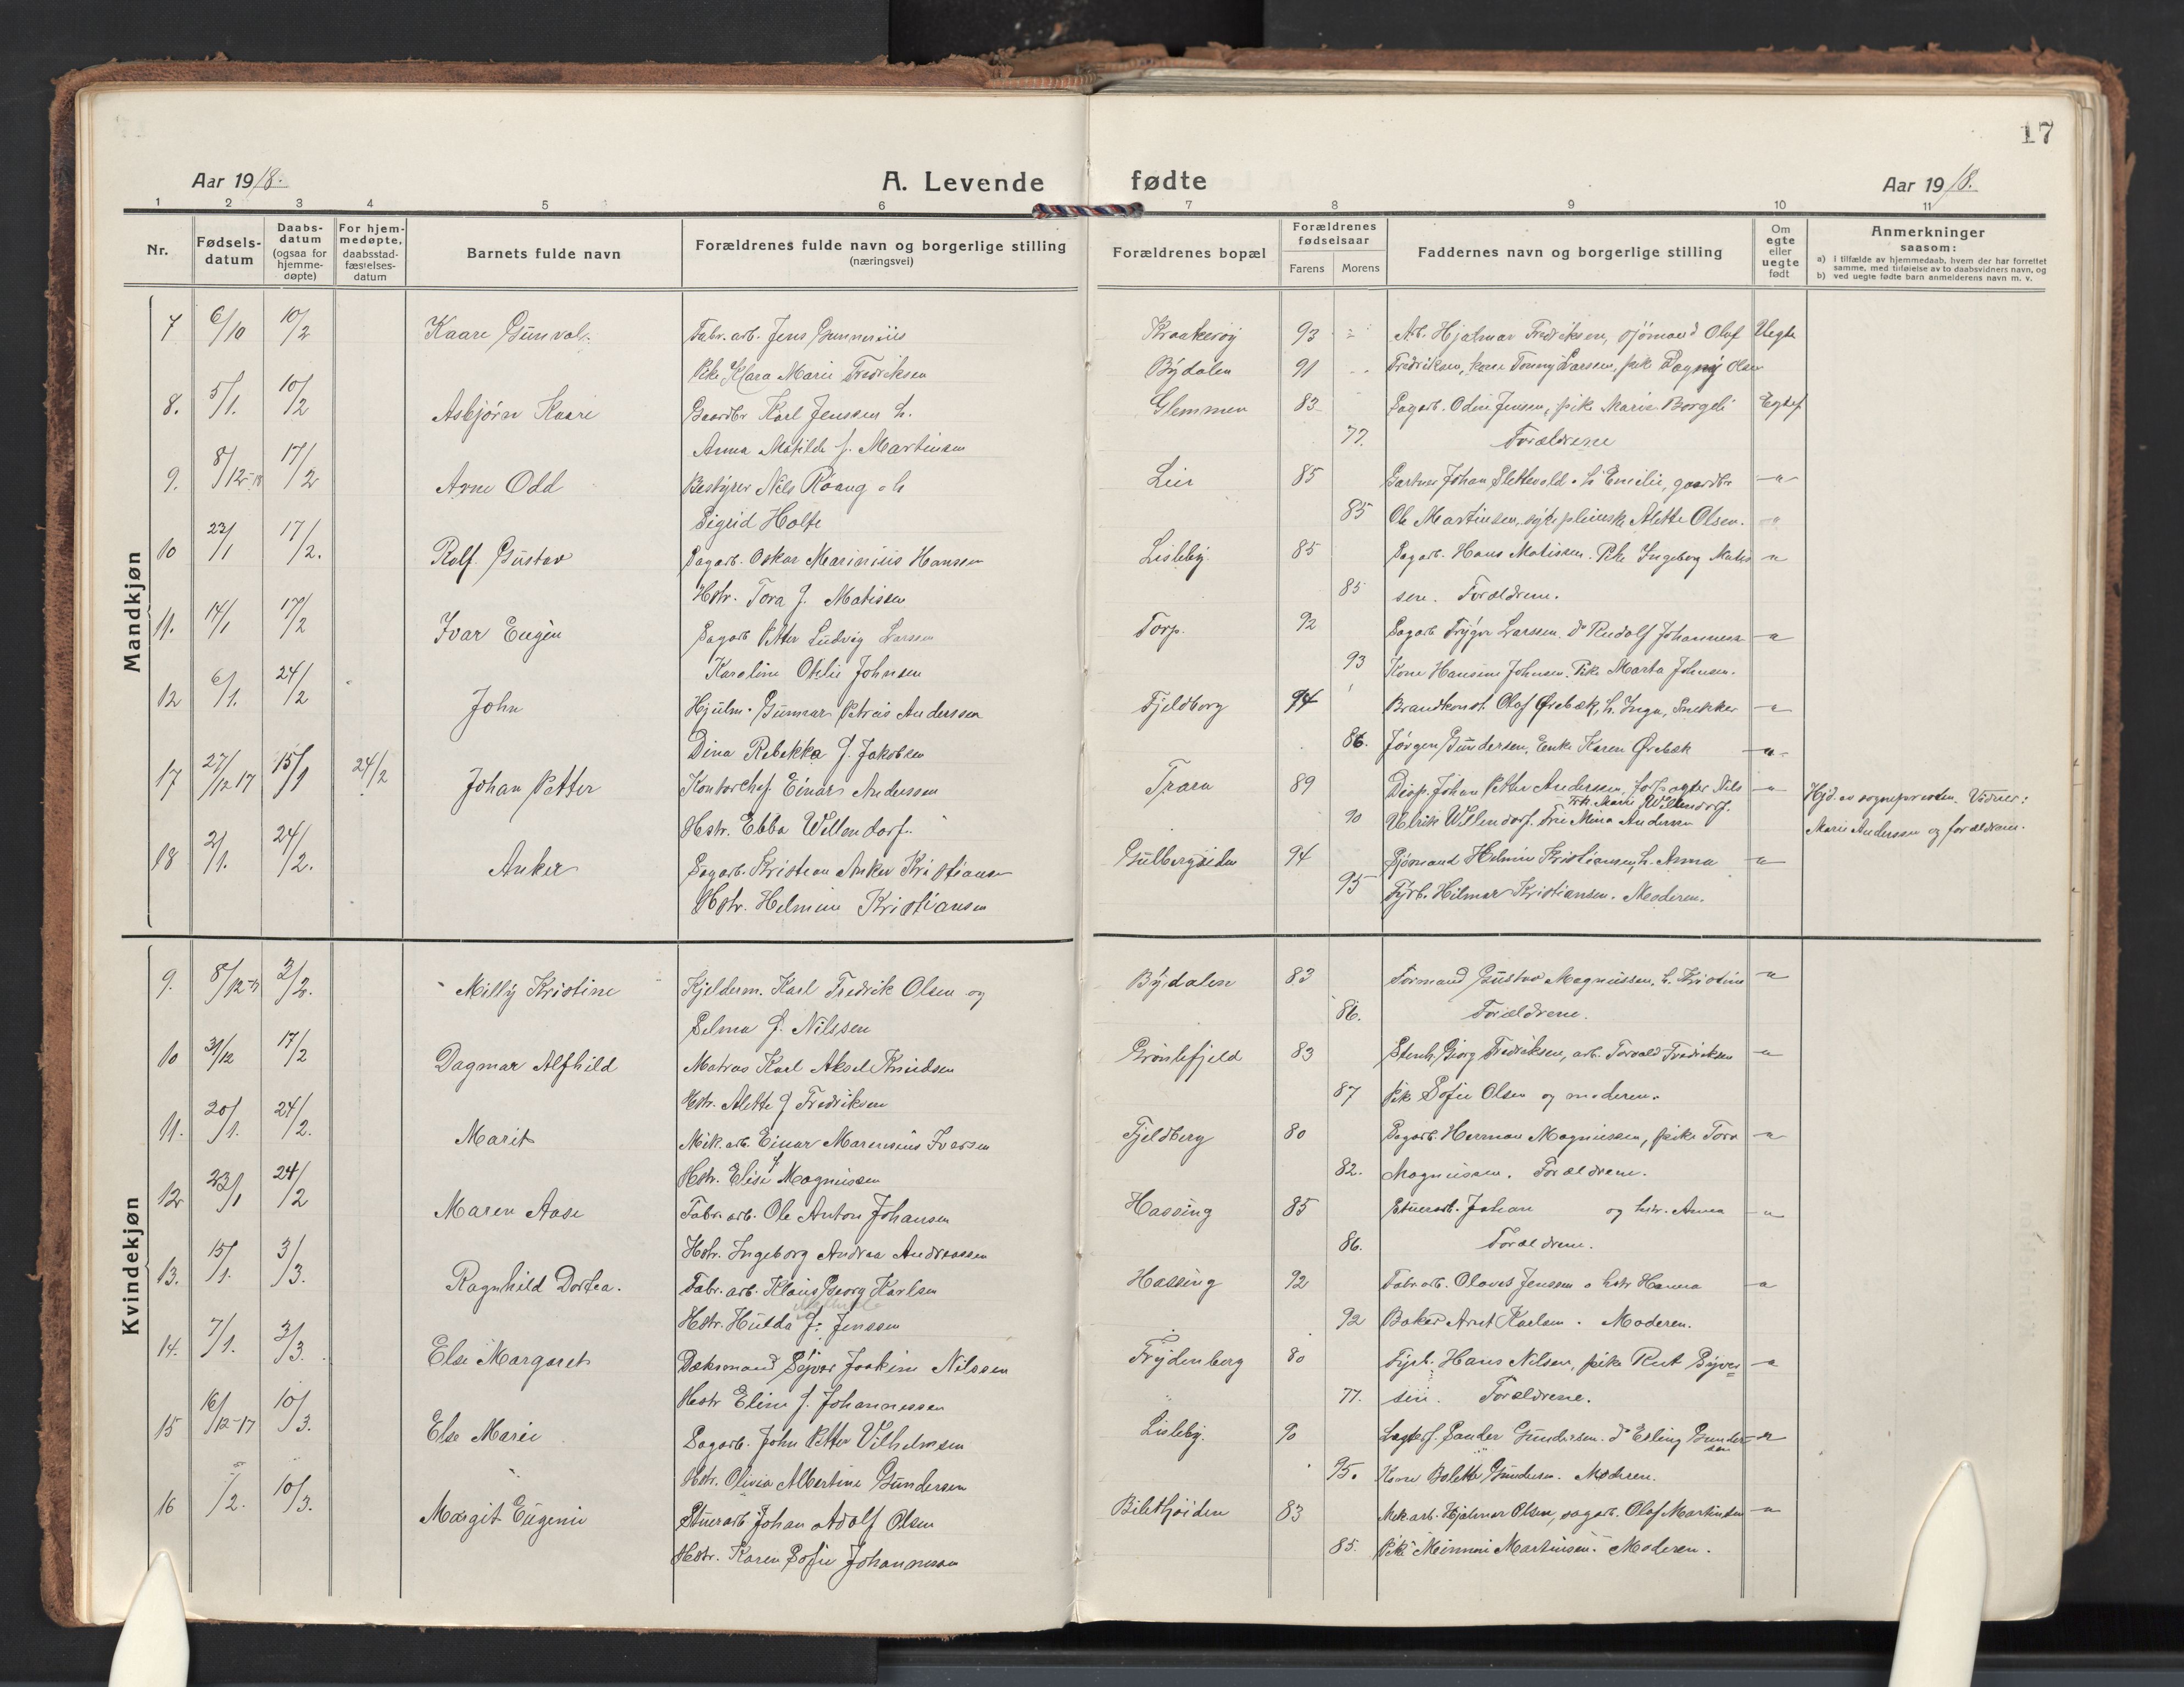 17
Aar 1918.
A. Levende fødte
Aar 1918.
1 2 3 4 5 6 7 8 9 10 11
Nr.
Fødsels-
datum
Daabs-
datum
(ogsaa for
hjemme-
døpte)
For hjem-
medøpte,
daabsstad-
fæstelses-
datum
Barnets fulde navn
Forældrenes fulde navn og borgerlige stilling
(næringsvei)
Forældrenes bopæl
Forældrenes
fødselsaar
Farens Morens
Faddernes navn og borgerlige stilling
Om
egte
eller
uegte
født
Anmerkninger
saasom:
a) i tilfælde av hjemmedaab, hvem der har forrettet
samme, med tilføielse av to daabsvidners navn, og
b) ved uegte fødte barn anmelderens navn m. v.
Mandkjøn
7 6/10 10/2 Kaare Gunval. Fabr. arb. Jens Gunnerius Kraakerøy 93 Arb. Hjalmar Fredriksen, sjömand Olaf Uegte
Pike Klara Marie Fredriksen Bydalen 91 Fredriksen, kone Tonny Larsen, pike Dagny Olsen
8. 5/1. 10/2 Asbjörn Kaare Gaardbr Karl Jensen h. Glemmen 83 Sagarb. Odin Jensen, pike Marie Borgeli Egtef
Anna Matilde f. Martinsen 77. Forældrene
9. 8/12-18 17/2 Arne Odd Bestyrer Nils Roang o h Leir 85 Gartner Johan Slettevold o h Emilie, gaardbr
Sigrid Holte 85 Ole Martinsen, sykepleierske Alette Olsen.
10 23/1 17/2. Rolf Gustav Sagarb. Oskar Marinius Hansen Lisleby. 85 Sagarb. Hans Matisen. Pike Ingeborg Matis
Hstr. Tora f. Matisen 85 sen. Forældrene.
11. 14/1 17/2 Ivar Eugen Sagarb Petter Ludvig Larsen Torp. 92 Sagarb Trygve Larsen. Do Rudolf Johannesen
Karoline Otelie Johnsen 93 Kone Hansine Johnsen. Pike Marta Johnsen.
12 6/1. 24/2 John Hjulm. Gunnar Petreus Anderssen Fjeldberg 94 Brandkonst. Olaf Ørebæk, h. Inga, Snekker
Dina Rebekka f. Jakobsen 86. Jørgen Gundersen, Enke Karen Ørebæk
17 27/12 17 15/1 24/2 Johan Petter Kontorchef Einar Anderssen Trara 89 Disp. Johan Petter Anderssen, forpagter Nils
Frk. Marie Willendorf.
Hstr. Ebba Willendorf. 90 Ulrik Willendorf. Fru Mina Anderssen
Hjd. av sognepresten. Vidner:
Marie Anderssen og forældrene.
18 2/1. 24/2. Anker Sagarb. Kristian Anker Kristiansen Gulbergsiden 94 Sjömand Helmer Kristiansen, h. Anna
Hstr. Helmine Kristiansen 95 Fyrb. Hilmar Kristiansen. Moderen.
Kvindekjøn
9. 8/12-17 3/2. Milly Kristine Kjelderm. Karl Fredrik Olsen og Bydalen 83 Formand Gustav Magnussen, h. Kristine
Selma f. Nilssen 86. Forældrene.
10 31/12 17/2 Dagmar Alfhild Matros Karl Aksel Knudsen Grönlifjeld 83 Stuerb. Georg Fredriksen, arb. Torvald Fredriksen
Hstr. Alette f Fredriksen 87 Pike Sofie Olsen og moderen.
11. 20/1. 24/2. Marit Mek. arb. Einar Marensius Iversen Fjeldberg 80 Sagarb. Herman Magnussen, pike Tora
Hstr. Elise f Magnussen 82. Magnussen. Forældrene.
12 23/1 24/2 Maren Aase Fabr. arb. Ole Anton Johansen Hassing 85 Stuerarb. Johan og hstr. Anna
Hstr. Ingeborg Andrea Andreassen 86. Forældrene.
13. 15/1. 3/3. Ragnhild Dortea. Fabr. arb. Klaus Georg Karlsen Hassing 92 Fabr arb. Olaves Jenssen o hstr Hanna
Hstr. Hulda f. Jenssen 92 Baker Arnt Karlsen. Moderen.
14. 7/1. 3/3. Else Margaret Dæksmand Syver Joakim Nilssen Frydenberg 80 Fyrb. Hans Nilsen, pike Rut Syver
Hstr Eline f. Johannessen 77. sen. Forældrene.
15 16/12-17 10/3. Else Marie Sagarb. John Petter Vilhelmsen Lisleby. 90 Lagterf. Sander Gundersen. Do Erling Gunder
sen
Hstr. Olivia Albertine Gundersen 95. Kone Bolette Gundersen. Moderen.
16 /2. 10/3. Margit Eugenie Stuerarb Johan Adolf Olsen Biletthöiden 83 Mek arb. Hjalmar Olsen, sagarb. Olaf Martinsen
Hstr. Karen Sofie Johannesen 85. Pike Minnie Martinsen. Moderen.